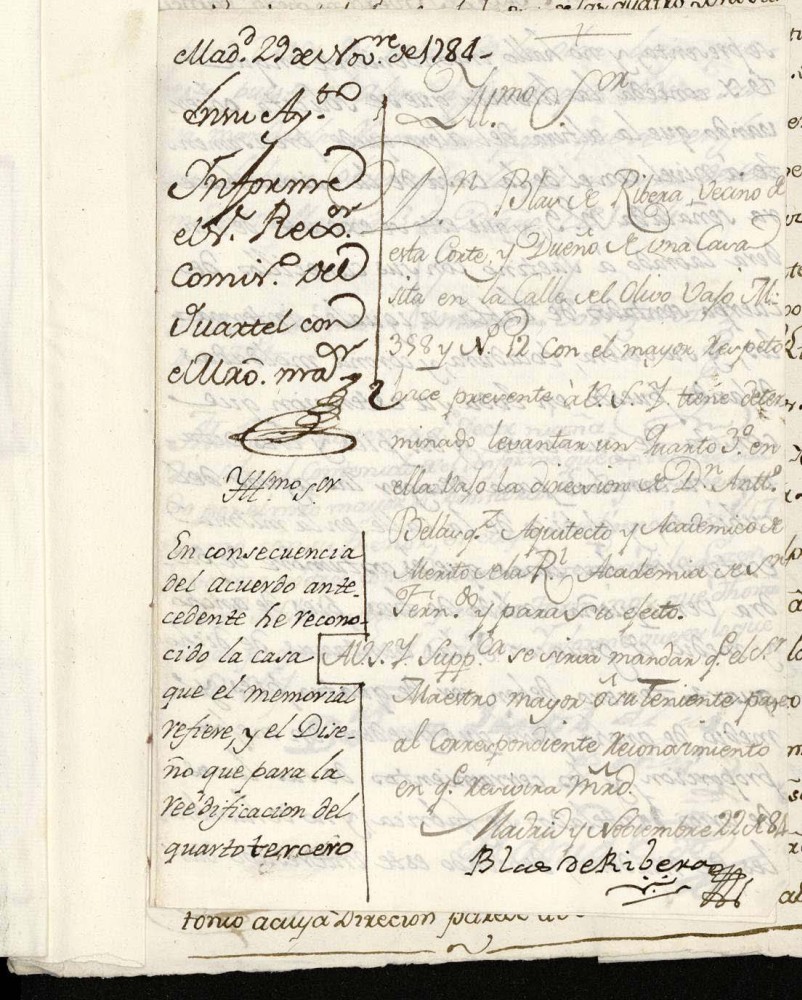 Mad.d 29 de Nov.re de 1784-
En su Ay.to
Informe
el S.r Rexo.or
Comis.o del
Quartel con
el Mro. mor
Yll.mo S.or
En consecuencia
del acuerdo ante-
cedente he recono-
cido la casa
que el memorial
refiere, y el Dise-
ño que para la
reedificacion del
quarto tercero
Yll.mo S.or
D.n Blas de Ribera, Vecino de
esta Corte, y Dueño de una Casa
sita en la Calle del Olivo Vajo, M.
358 y N.o 12 con el mayor Respeto
hace presente à V. S. Y. tiene deter-
minado levantar un Quarto 3.o en
ella vajo la direccion de D.n Antt.o
Belazq.z Aquitecto y Academico de
Merito de la R.l Academia de S.n
Fern.do y para su efecto.
A V. S. Y. Supp.ca se sirva mandar q.e el S.r
Maestro mayor ó su teniente pase
al Correspondiente Reconosimiento
en q.e Resivira mrd.
Madrid y Nobiembre 22 de 84
Blas de Ribera
tonio acuya Direcion parese